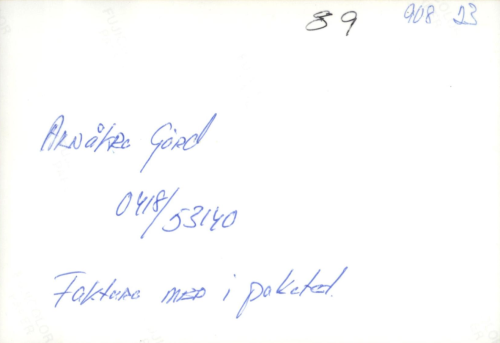 89
908 23
Arnåkra Gård
0418/53140
Faktura med i paketet.